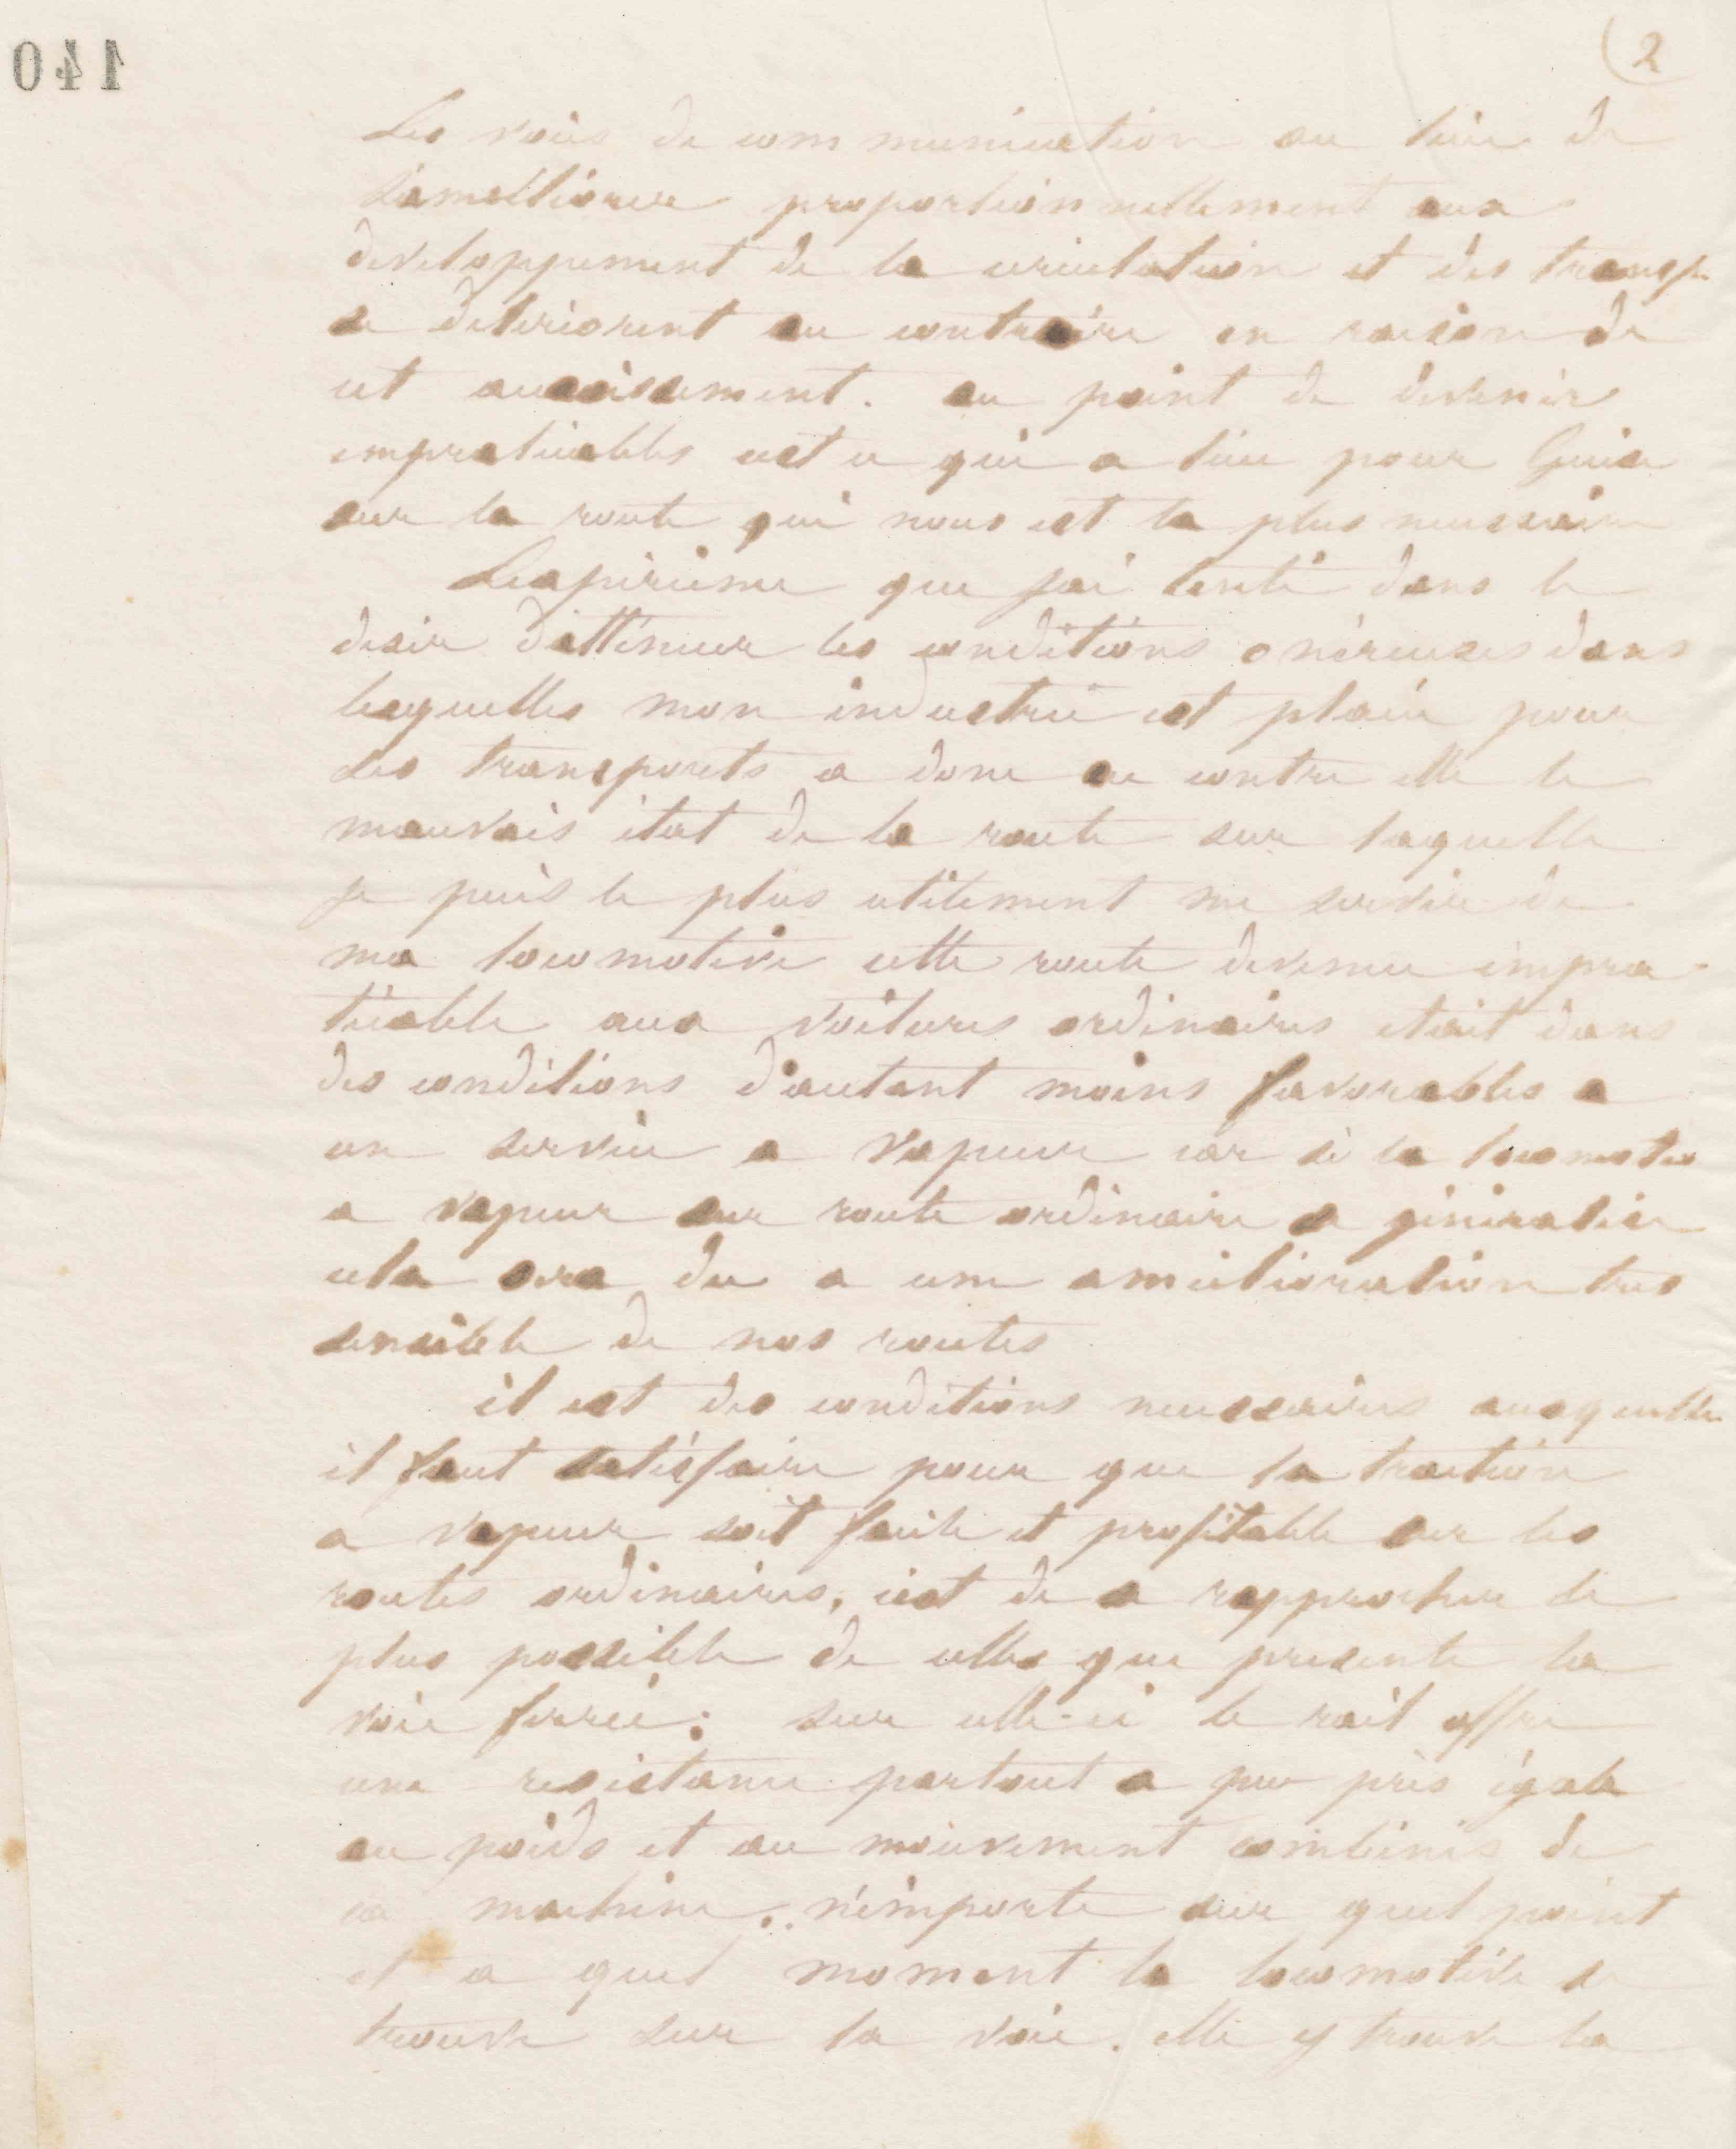 140
2
Les voies de communication au lieu de
s'amelliorer proportionnellement aux
developpement de la circulation et des transp.
se deteriorent au contraire en raison de
cet accroissement. au point de devenir
impraticables c'est ce qui a lieu pour Guise
sur la route qui nous est la plus necessaire
L'experience que j'ai tenté dans le
desir d'attenuer les conditions onéreuses dans
lesquelles mon industrie est placée pour
ses transports a donc eu contre elle le
mauvais état de la route sur laquelle
je puis le plus utilement me servir de
ma locomotive cette route devenue impra
ticable aux voitures ordinaires etait dans
des conditions d'autant moins favorables a
un service a vapeur car si la locomotive
a vapeur sur route ordinaire se géneralise
cela sera du a une amélioration tres
sensible de nos routes
il est des conditions necessaires auxquelles
il faut satisfaire pour que la traction
a vapeur soit facile et profitable sur les
routes ordinaires, c'est de se rapprocher le
plus possible de celles que presente la
voie ferrée: sur celle-ci le rail offre
une resistance partout a peu près égale
au poids et au mouvement combinés de
la machine. n'importe sur quel point
et a quel moment la locomotive se
trouve sur la voie. elle y trouve la